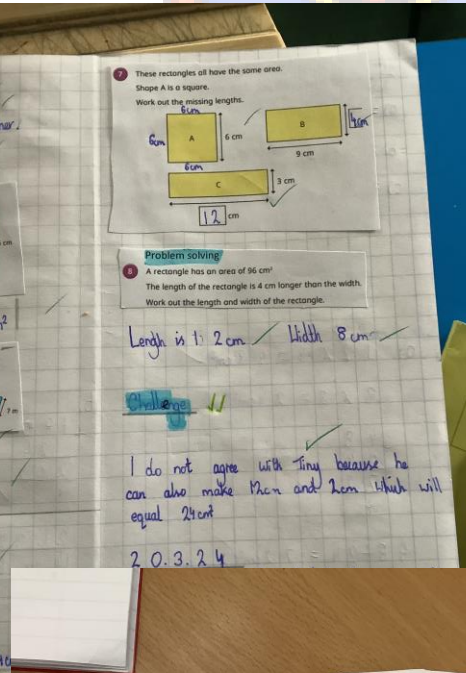 7 These rectangles all have the same area.
Shape A is a square.
Work out the missing lengths.
6cm
6cm A 6 cm
B 4cm
9 cm
6cm
C 3 cm
12 cm
Problem solving
8 A rectangle has an area of 96 cm²
The length of the rectangle is 4 cm longer than the width.
Work out the length and width of the rectangle.
Lengh is 12cm Width 8cm
Challenge
I do not agree with Tiny because he
can also make 12cm and 2cm which will
equal 24cm²
20.3.24